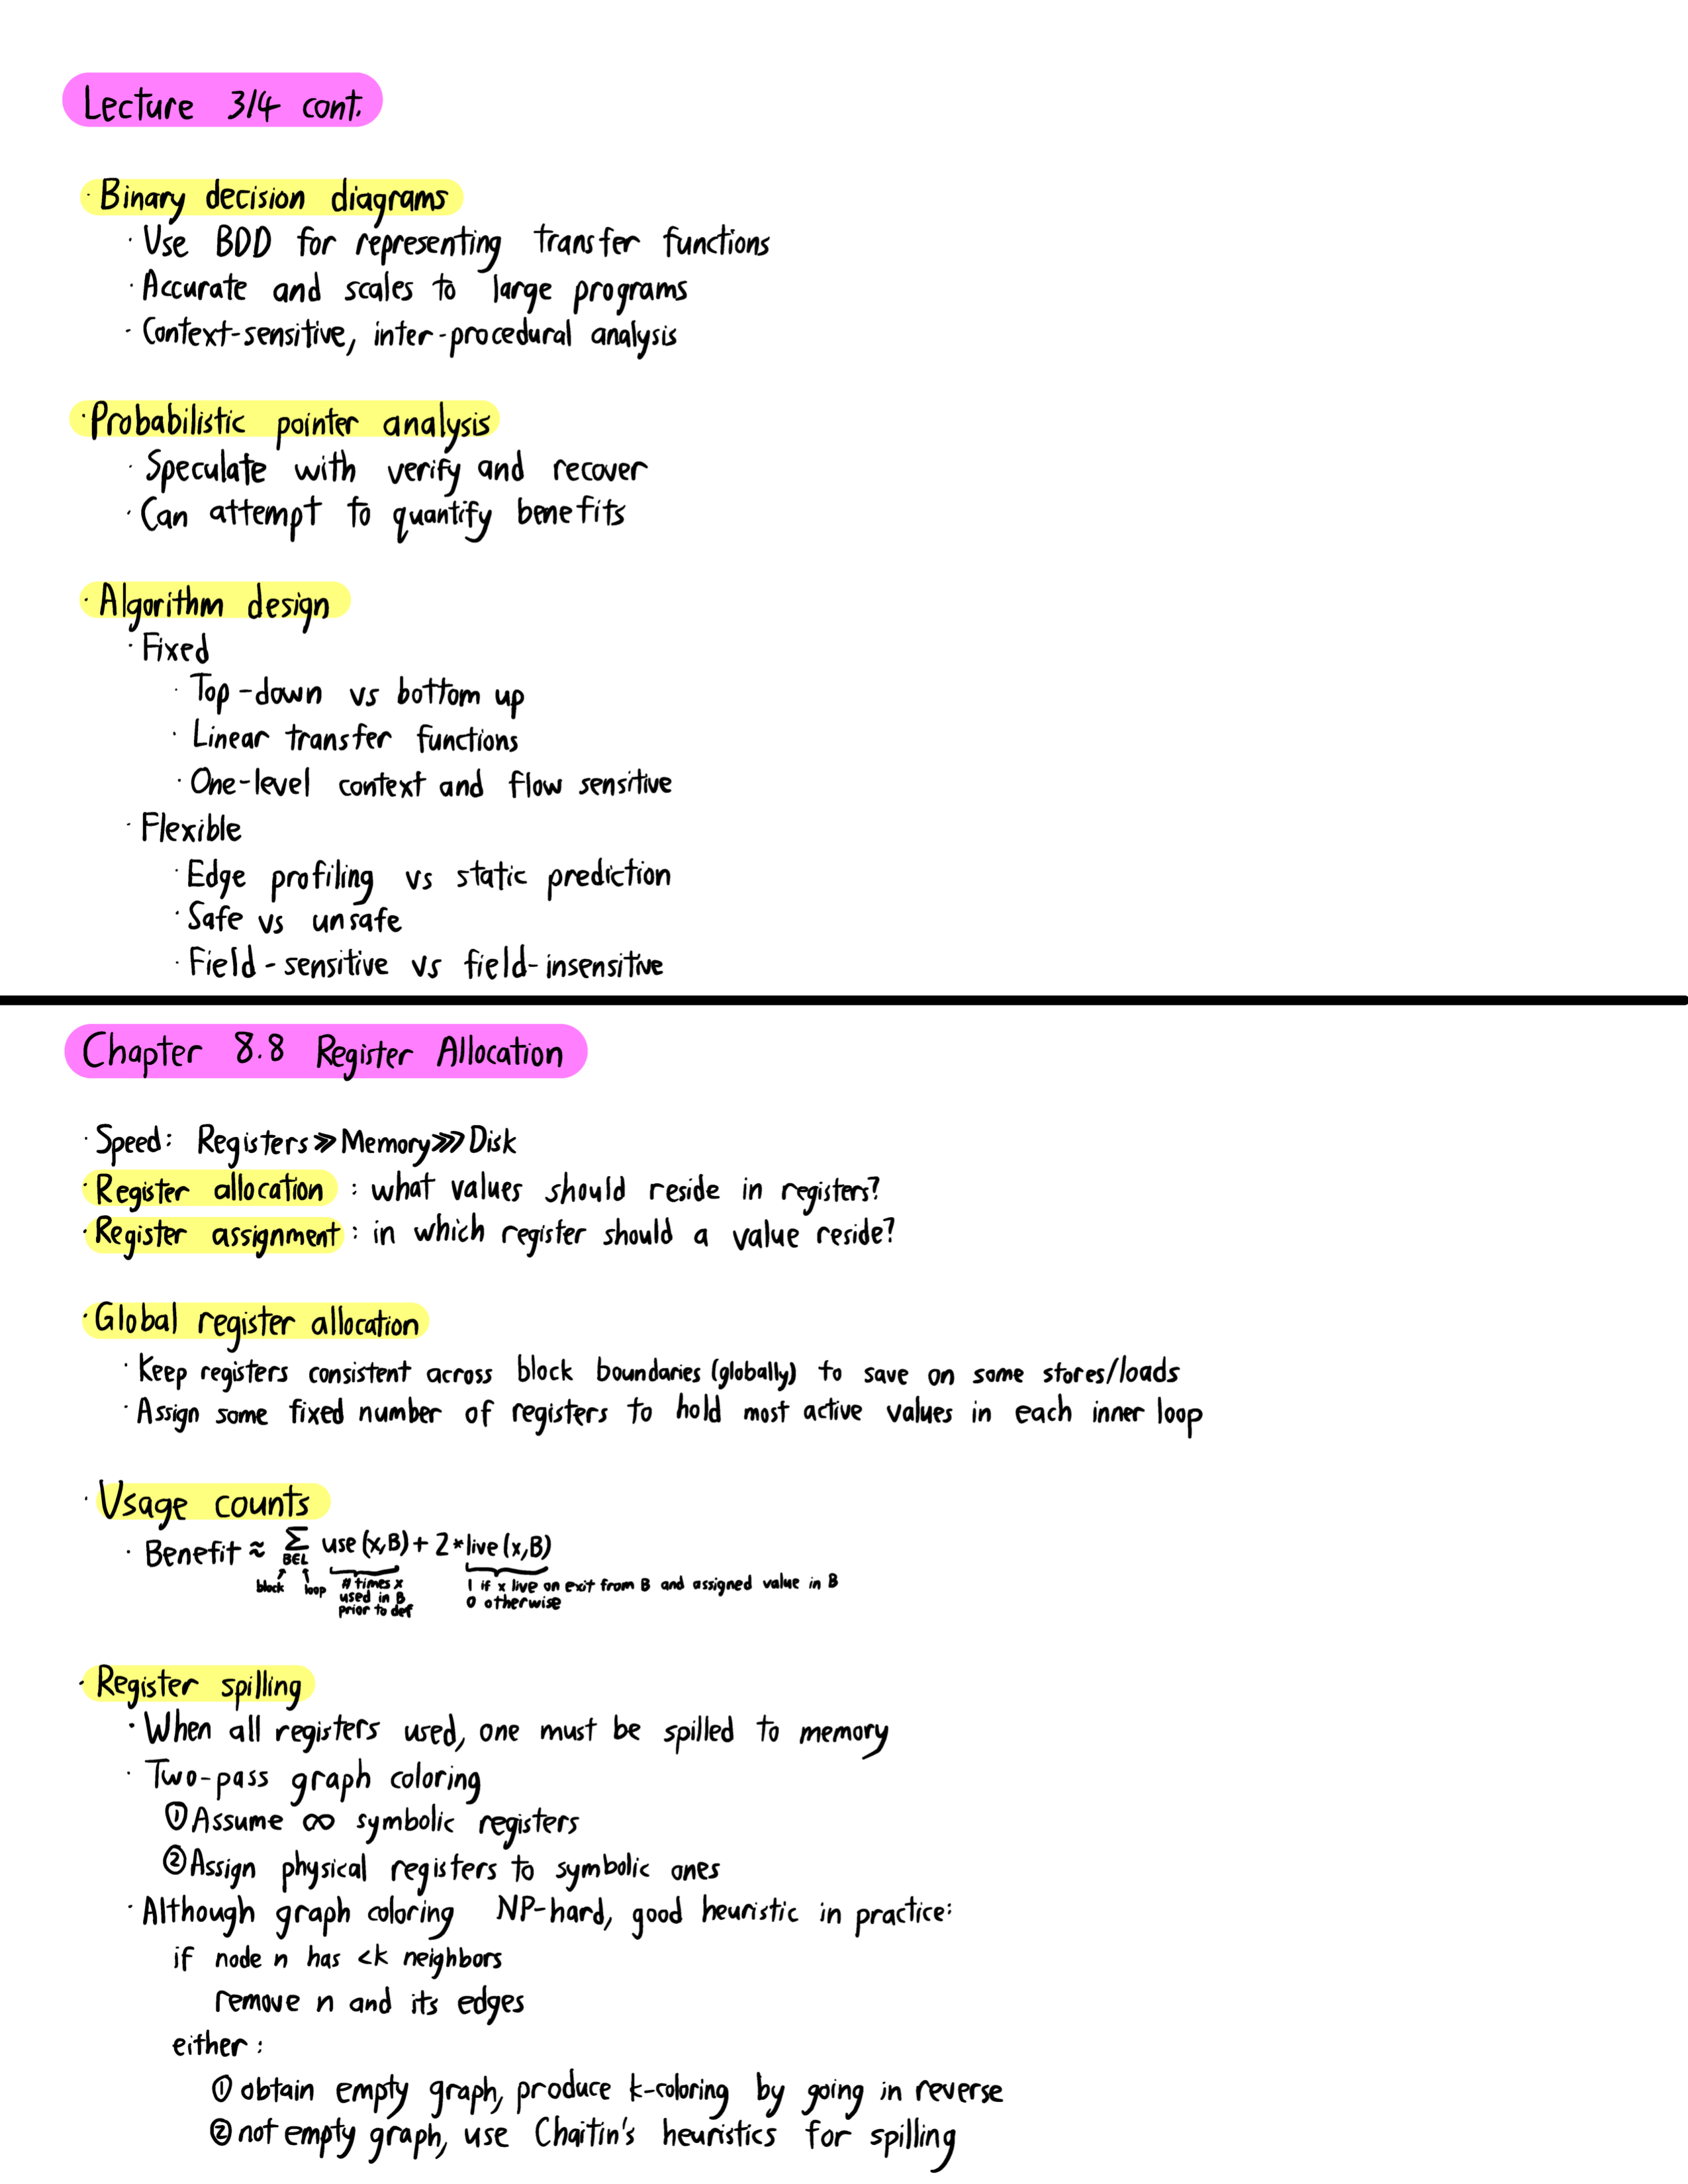 Lecture 3/4 cont.
· Binary decision diagrams
· Use BDD for representing transfer functions
· Accurate and scales to large programs
· Context-sensitive, inter-procedural analysis
· Probabilistic pointer analysis
· Speculate with verify and recover
· Can attempt to quantify benefits
· Algorithm design
· Fixed
· Top-down vs bottom up
· Linear transfer functions
· One-level context and flow sensitive
· Flexible
· Edge profiling vs static prediction
· Safe vs unsafe
· Field-sensitive vs field-insensitive
Chapter 8.8 Register Allocation
· Speed: Registers ≫ Memory ⋙ Disk
· Register allocation : what values should reside in registers?
· Register assignment : in which register should a value reside?
· Global register allocation
· Keep registers consistent across block boundaries (globally) to save on some stores/loads
· Assign some fixed number of registers to hold most active values in each inner loop
· Usage counts
· Benefit ≈ Σ use(x,B) + 2*live(x,B)
B∈L
block loop # times x used in B prior to def
1 if x live on exit from B and assigned value in B
0 otherwise
· Register spilling
· When all registers used, one must be spilled to memory
· Two-pass graph coloring
① Assume ∞ symbolic registers
② Assign physical registers to symbolic ones
· Although graph coloring NP-hard, good heuristic in practice:
if node n has <k neighbors
remove n and its edges
either:
① obtain empty graph, produce k-coloring by going in reverse
② not empty graph, use Chaitin's heuristics for spilling